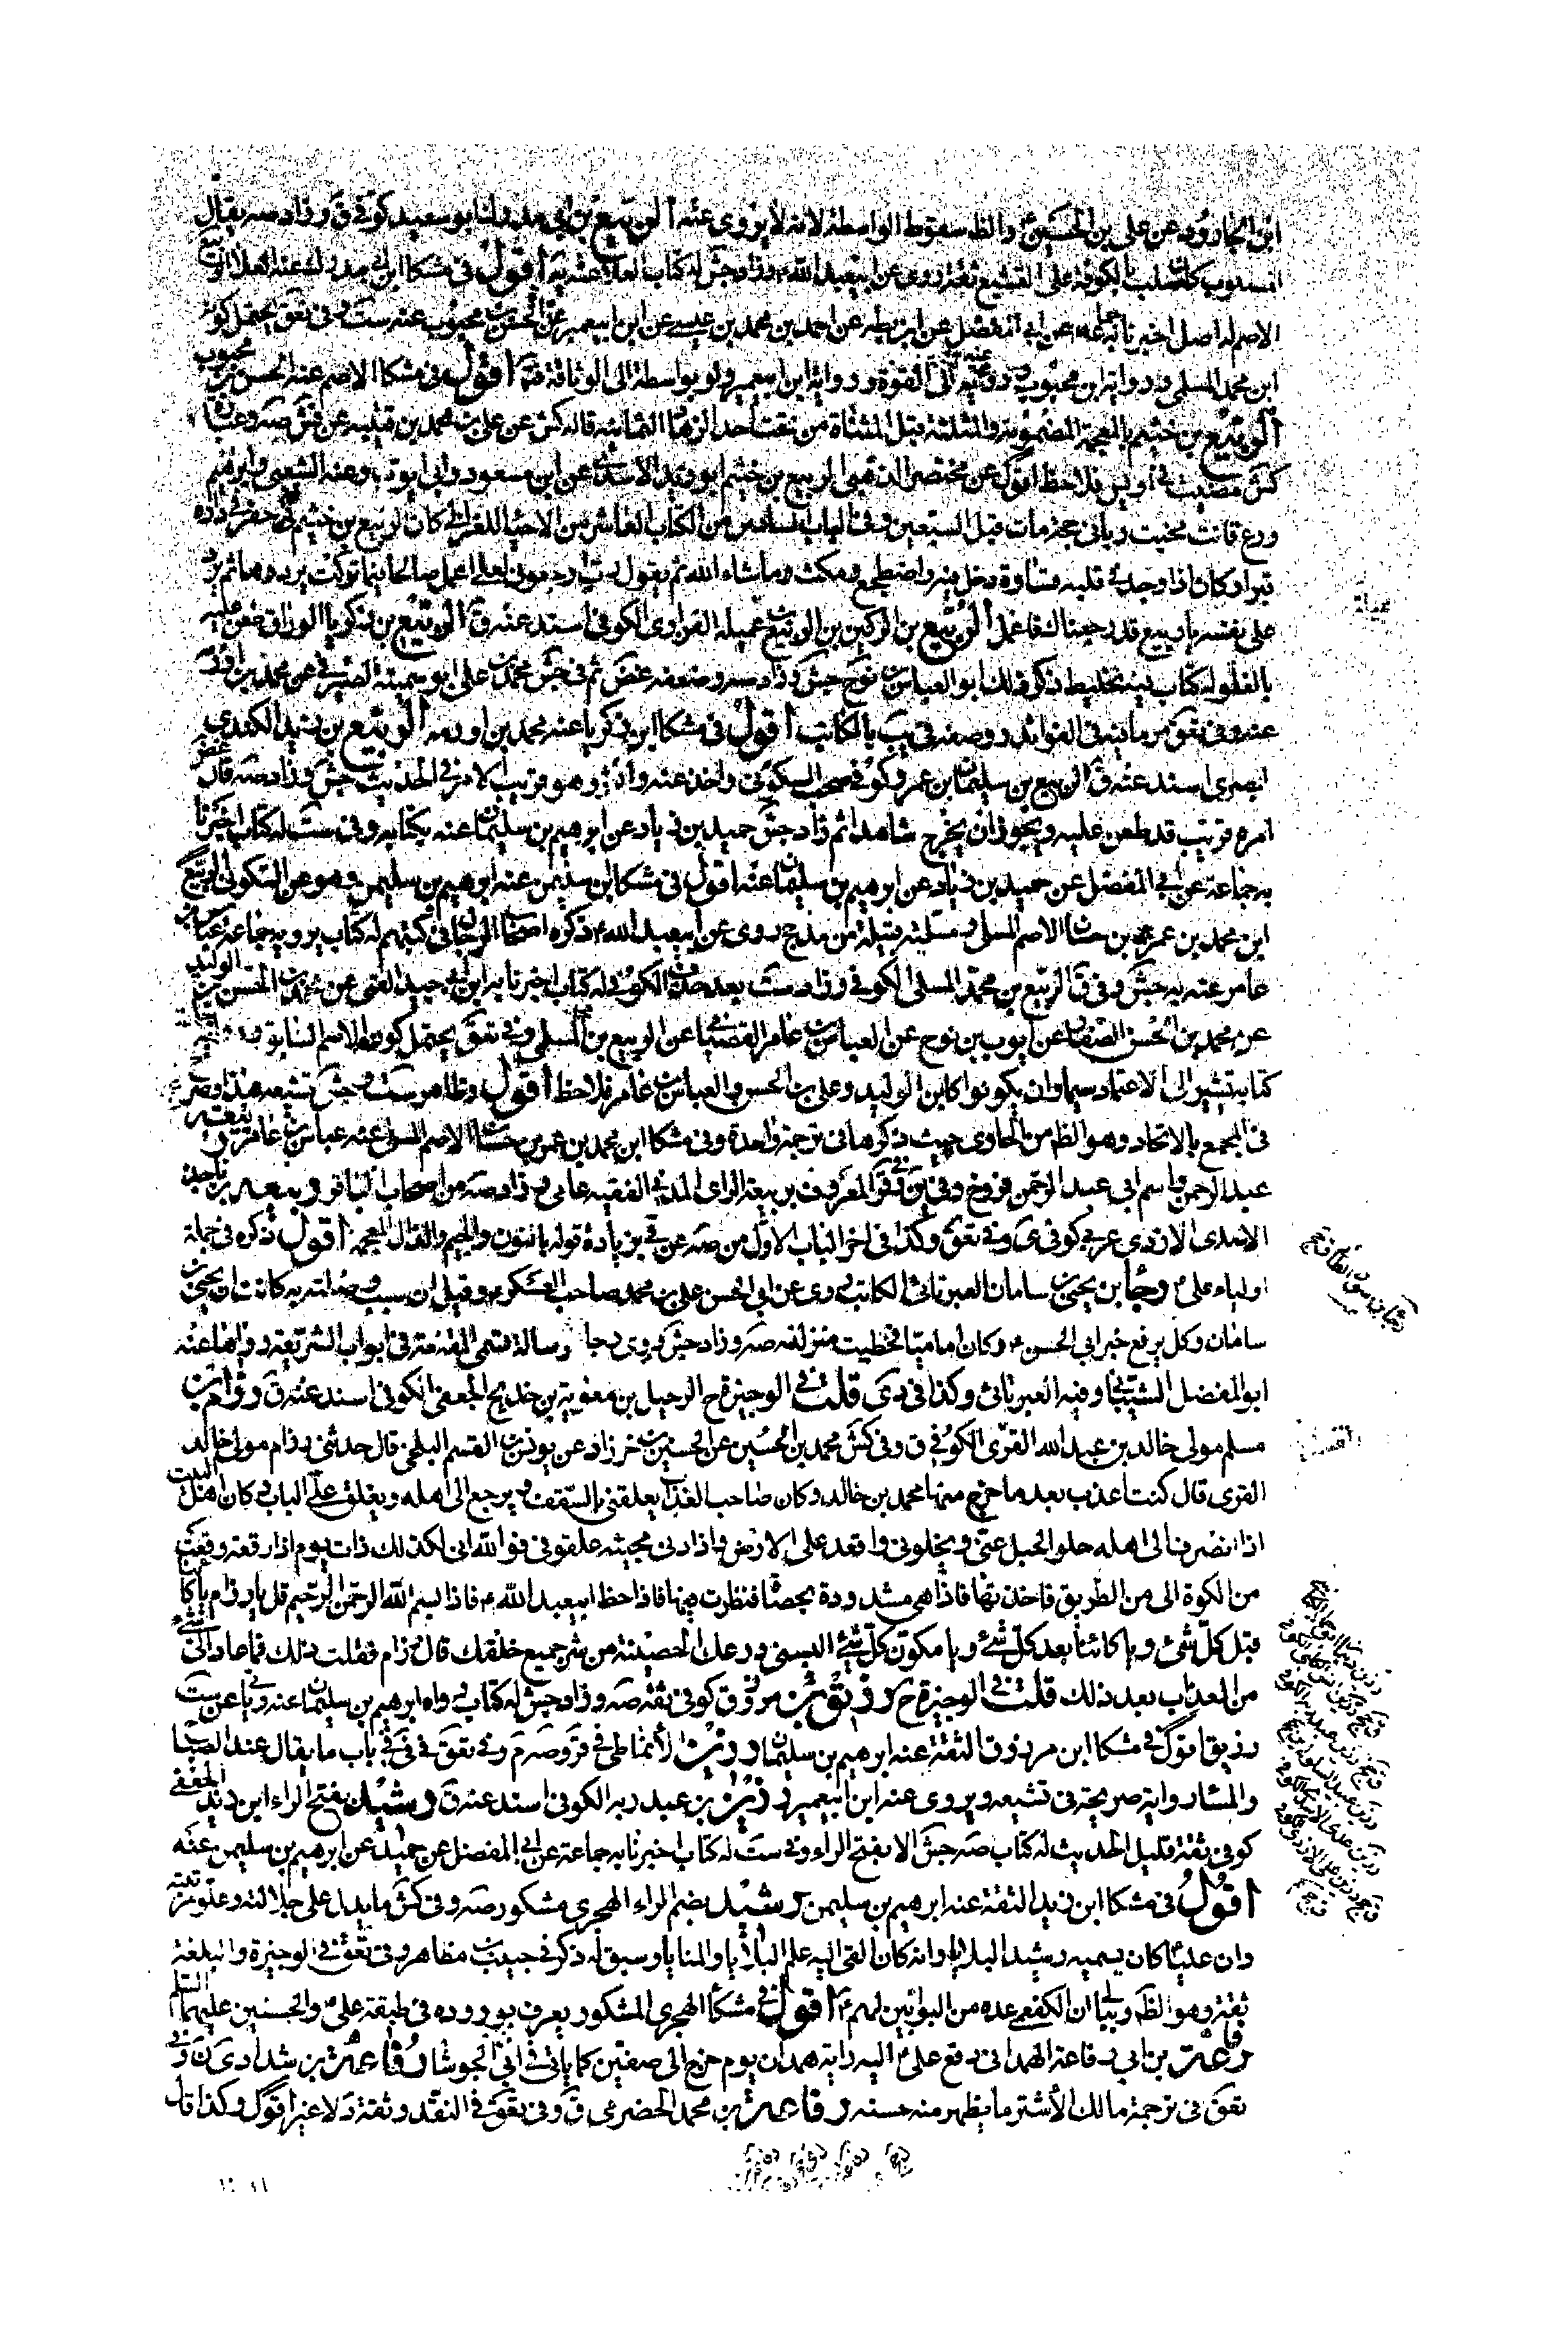 ابن الجارود عن علي بن الحسين والظ سقوط الواسطة لانه لا يروى عنه الربيع بن ابي مدرك ابو سعيد كوفى ق وزاد صه يقال
المصلوب كان صلب بالكوفة على التشيع ثقة روى عن ابيعبد الله م وزاد جش له كتاب العلا عنه به اقول فى مشكا ابن ابى مدرك عنه العلا الربيع
الاصم له اصل اخبرنا به جماعة عن ابى المفضل عن ابن بطه عن احمد بن محمد بن عيسى عن ابن ابيعمير عن الحسن بن محبوب عنه ست وفى تعق يحتمل كونه
ابن محمد المسلى ورواية ابن محبوب عنه تومى الى القوة ورواية ابن ابيعمير ولو بواسطة الى الوثاقة اقول فى مشكا الاصم عنه الحسن بن محبوب
الربيع بن خثيم بالمعجمة المضمومة والمثلثة قبل المثناة من تحت احد الزهاد الثمانية قاله كش عن على بن محمد بن قتيبه عن فش صه وعبارة
كش مضت فى اويس فلاحظ اقول عن مختصر الذهبى الربيع بن خثيم ابو يزيد الاسدى عن ابن مسعود وابى ايوب وعنه الشعبى وابرهيم
ورع قانت مخبت ربانى حجة مات قبل السبعين وفى الباب السادس من الكتاب العاشر من الاحيا للغزالى كان الربيع بن خثيم حفر فى داره
قبرا وكان اذا وجد فى قلبه قساوة دخل فيه واضطجع ومكث ما شاء الله ثم يقول رب ارجعون لعلى اعمل صالحا فيما تركت يرددها ثم يرد
على نفسه يا ربيع قد رجعناك فاعمل الربيع بن الركين بن الربيع بن عميلة الفزارى الكوفى اسند عنه ق الربيع بن زكريا الوراق طعن عليه
بالغلو له كتاب فيه تخليط ذكر ذلك ابو العباس بن نوح جش وزاد صه وضعفه غض ثم فى جش محمد بن على ابو سمينة الصيرفى عن محمد بن اورمة
عنه وفى تعق مر ما فيه فى الفوائد ووصفه فى يب بالكاتب اقول فى مشكا ابن زكريا عنه محمد بن اورمه الربيع بن زيد الكندى
بصرى اسند عنه ق الربيع بن سليمان بن عمرو كوفى صحب السكونى واخذ عنه واكثر وهو قريب الامر فى الحديث جش وزاد صه قال غض
امره قريب قد طعن عليه ويجوز ان يخرج شاهدا ثم زاد جش حميد بن زياد عن ابرهيم بن سليمان عنه بكتابه وفى ست له كتاب اخبرنا
به جماعة عن ابى المفضل عن حميد بن زياد عن ابرهيم بن سليمان عنه اقول فى مشكا ابن سليمن عنه ابرهيم بن سليمن وهو عن السكونى الربيع
ابن محمد بن عمر بن حسان الاصم المسلى ومسلية قبيلة من مذحج روى عن ابيعبد الله م ذكره اصحاب الرجال فى كتبهم له كتاب يرويه جماعة عباس بن
عامر عنه به جش وفى ق الربيع بن محمد المسلى الكوفى وزاد ست بعد حذف الكوفى له كتاب اخبرنا به ابن ابى جيد القمى عن محمد بن الحسن بن الوليد
عن محمد بن الحسن الصفار عن ايوب بن نوح عن العباس بن عامر القصبانى عن الربيع بن المسلى وفى تعق يحتمل كونه الاصم السابق
كتابه تشير الى الاعتماد سيما وان يكونوا كابن الوليد وعلى بن الحسن والعباس بن عامر فلاحظ اقول وظاهر ست وجش تشيعه هذا وصرح
فى المجمع بالاتحاد وهو الظ من الحاوى حيث ذكرهما فى ترجمة واحدة وفى مشكا ابن محمد بن عمر بن حسان الاصم المسلى عنه عباس بن عامر الثقة
عبد الرحمن واسم ابى عبد الرحمن فروخ وفى ين وفى قر المعروف بربيعة الراى المدنى الفقيه عامى وزاد صه من اصحاب الباقر ربيعة بن ناجذ
الاسدى الازدى عربى كوفى ى وفى تعق وكذا فى اخر الباب الاول من صه عن قى بزيادة قوله بالنون والجيم والذال المعجمة اقول ذكره فى جملة
اولياء على م رجا بن يحيى بن سامان العبرتائى الكاتب روى عن ابى الحسن على بن محمد صاحب العسكر م وقيل ان سبب وصلته به كانت ان يحيى بن
سامان وكل برفع خبر ابى الحسن م وكان اماميا فحظيت منزلته صه وزاد جش روى رجا رسالة تسمى المقنعة فى ابواب الشريعة رواها عنه
ابو المفضل الشيبانى وفيه العبرتائى وكذا فى دى قلت فى الوجيزة ح الرحيل بن معوية بن خديج الجعفى الكوفى اسند عنه ق رزام بن
مسلم مولى خالد بن عبد الله القرى الكوفى ق وفى كش محمد بن الحسين عن الحسن بن خرزاد عن يونس بن القسم البلخى قال حدثنى رزام مولى خالد
القرى قال كنت اعذب بعد ما خرج منها محمد بن خالد وكان صاحب العذاب يعلقنى بالسقف ويرجع الى اهله ويغلق على الباب وكان اهل البيت
اذا انصرف الى اهله حلوا الحبل عنى ويخلونى واقعد على الارض واذا دنى مجيئه علقونى فوالله انى لكذلك ذات يوم اذا رقعة وقعت
من الكوة الى من الطريق فاخذتها فاذا هى مشدودة بحصاة فنظرت فيها فاذا خط ابيعبد الله م فاذا بسم الله الرحمن الرحيم قل يا رزام يا كائنا
قبل كل شئ ويا كائنا بعد كل شئ ويا مكون كل شئ البسنى درعك الحصينة من شر جميع خلقك قال رزام فقلت ذلك فما عاد الى شئ
من العذاب بعد ذلك قلت فى الوجيزة ح رزيق بن مرزوق كوفى ثقة صه وزاد جش له كتاب رواه ابرهيم بن سليمان عنه ويأتى عن ست
رزيق اقول فى مشكا ابن مرزوق الثقة عنه ابرهيم بن سليمان رزين الانماطى فى قر وصه م وفى تعق فى فى باب ما يقال عند الصباح
والمساء رواية صريحة فى تشيعه ويروى عنه ابن ابيعمير رزين بن عبد ربه الكوفى اسند عنه ق رشيد بفتح الراء ابن زيد الجعفى
كوفى ثقة قليل الحديث له كتاب صه جش الا بفتح الراء وفى ست له كتاب اخبرنا به جماعة عن ابى المفضل عن حميد عن ابرهيم بن سليمن عنه
اقول فى مشكا ابن زيد الثقة عنه ابرهيم بن سليمن رشيد بضم الراء الهجرى مشكور صه وفى كش ما يدل على جلالته وعلو مرتبته
وان عليا كان يسميه رشيد البلايا وانه كان القى اليه علم البلايا والمنايا وسبق له ذكر فى حبيب بن مظاهر وفى تعق فى الوجيزة والبلغة
ثقة وهو الظ وببالى ان الكفعمى عده من البوابين لهم م اقول فى مشكا الهجرى المشكور يعرف بوروده فى طبقة على م والحسنين عليهما السلم
رفاعة بن ابى رفاعة الهمدانى دفع على م اليه راية همدان يوم خرج الى صفين كما ياتى فى ابى الجوشا رفاعة بن شداد ى ن وفى
تعق فى ترجمة مالك الاشتر ما يظهر منه حسنه رفاعة بن محمد الحضرمى ق وفى تعق فى النقد وثقة د لا غير اقول وكذا قال